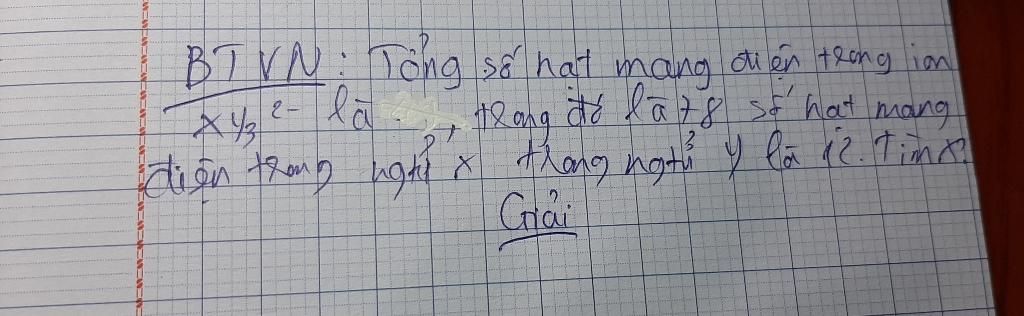 BTVN: Tổng số hạt mang điện trong ion
XY3 2- là , trong đó là 78 số hạt mang
điện trong ngtử X trong ngtử Y là 12. Tìm X?
Giải